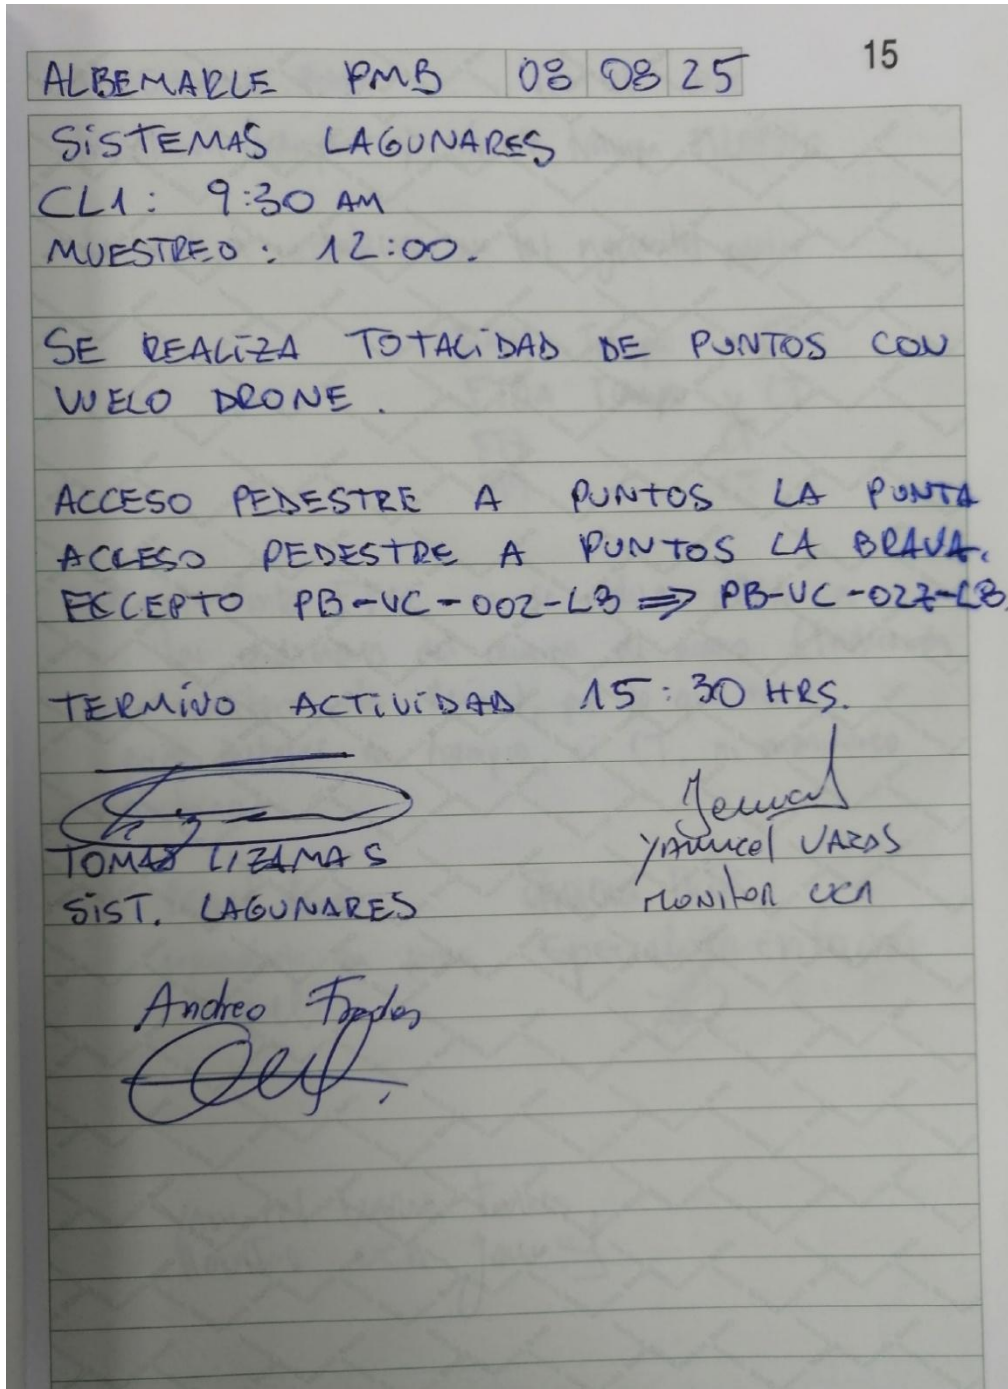 15
ALBEMARLE PMB 08 08 25
SISTEMAS LAGUNARES
CL1: 9:30 AM
MUESTREO: 12:00.
SE REALIZA TOTALIDAD DE PUNTOS CON
VUELO DRONE.
ACCESO PEDESTRE A PUNTOS LA PUNTA
ACCESO PEDESTRE A PUNTOS LA BRAVA.
EXCEPTO PB-VC-002-LB ⇒ PB-VC-027-LB.
TERMINO ACTIVIDAD 15:30 HRS.
TOMAS LIZAMA S
SIST. LAGUNARES
MONITOR
Andreo